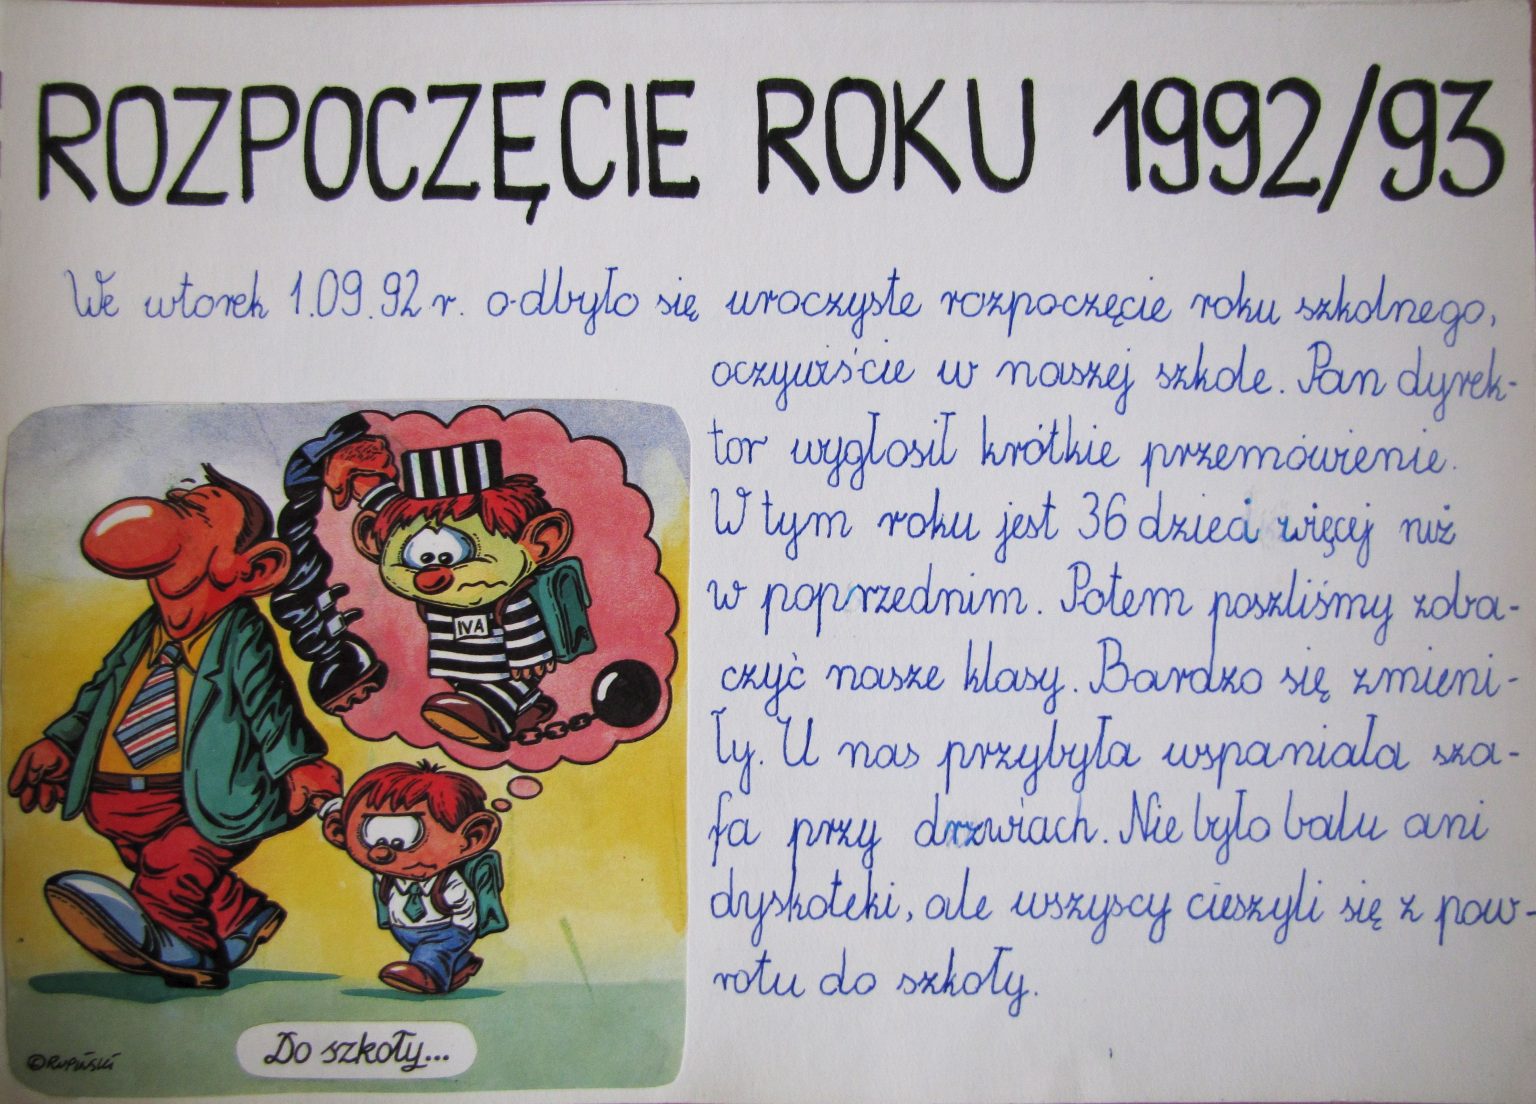 ROZPOCZĘCIE ROKU 1992/93
We wtorek 1.09.92 r. odbyło się uroczyste rozpoczęcie roku szkolnego,
oczywiście w naszej szkole. Pan dyrek-
tor wygłosił krótkie przemówienie.
W tym roku jest 36 dzieci więcej niż
w poprzednim. Potem poszliśmy zoba-
czyć nasze klasy. Bardzo się zmieni-
ły. U nas przybyła wspaniała sza-
fa przy drzwiach. Nie było balu ani
dyskoteki, ale wszyscy cieszyli się z pow-
rotu do szkoły.
IVA
Do szkoły...
©RUPIŃSKI